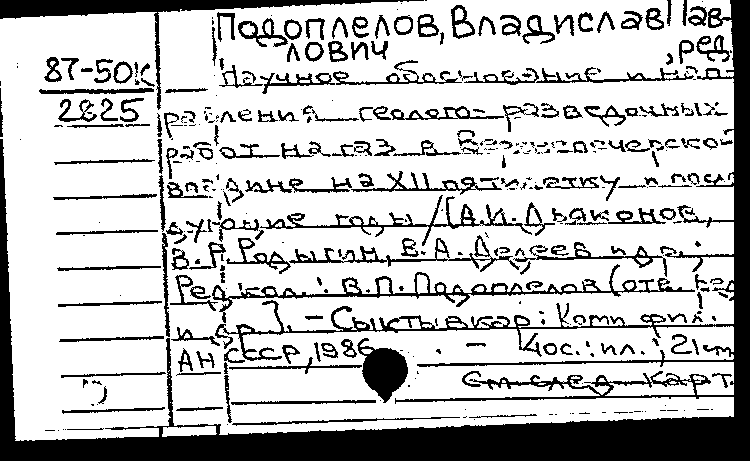 Подоплелов, Владислав Пав-
лович, ред.
87-50К
2825
Научное обоснование и нап-
равления геолого-разведочных
работ на газ в Верхнепечерской
впадине на XII пятилетку и после
дующие годы / [А.И. Дьяконов,
В. Р. Родыгин, В. А. Дедеев и др.;
Редкол.: В.П. Подоплелов (отв. ред
и др.]. – Сыктывкар: Коми фил.
АН СССР, 1986. – 40с.: ил.; 21см
См след карт.